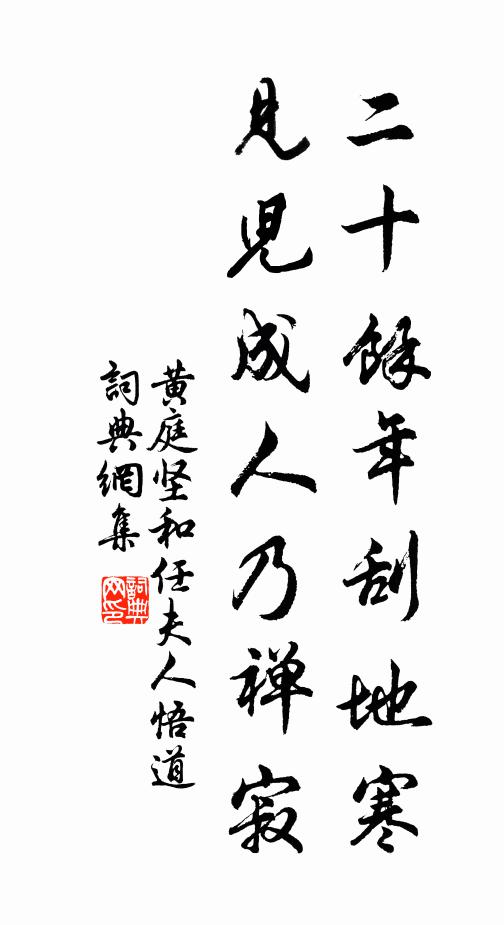 二十餘年刮地寒
見兒成人乃禅寂
黄庭坚和任夫人悟道
詞典網集
詞典網印